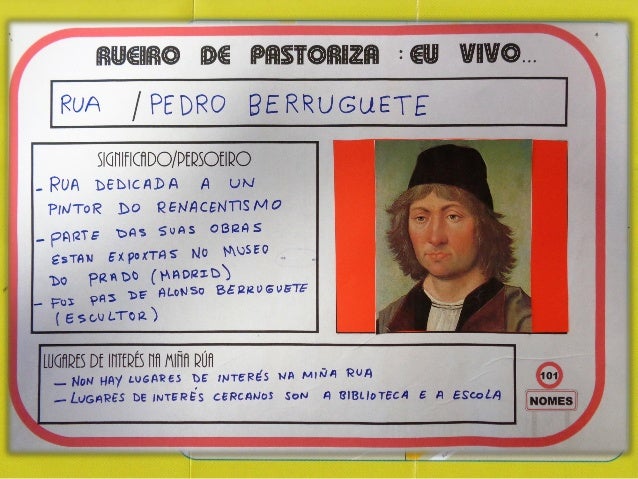 RUEIRO DE PASTORIZA : EU VIVO...
RUA / PEDRO BERRUGUETE
SIGNIFICADO/PERSOEIRO
- RUA DEDICADA A UN
PINTOR DO RENACENTISMO
- PARTE DAS SUAS OBRAS
ESTAN EXPOXTAS NO MUSEO
DO PRADO (MADRID)
- FOI PAI DE ALONSO BERRUGUETE
(ESCULTOR)
LUGARES DE INTERÉS NA MIÑA RÚA
- NON HAY LUGARES DE INTERÉS NA MIÑA RUA
- LUGARES DE INTERÉS CERCANOS SON A BIBLIOTECA E A ESCOLA
101
NOMES